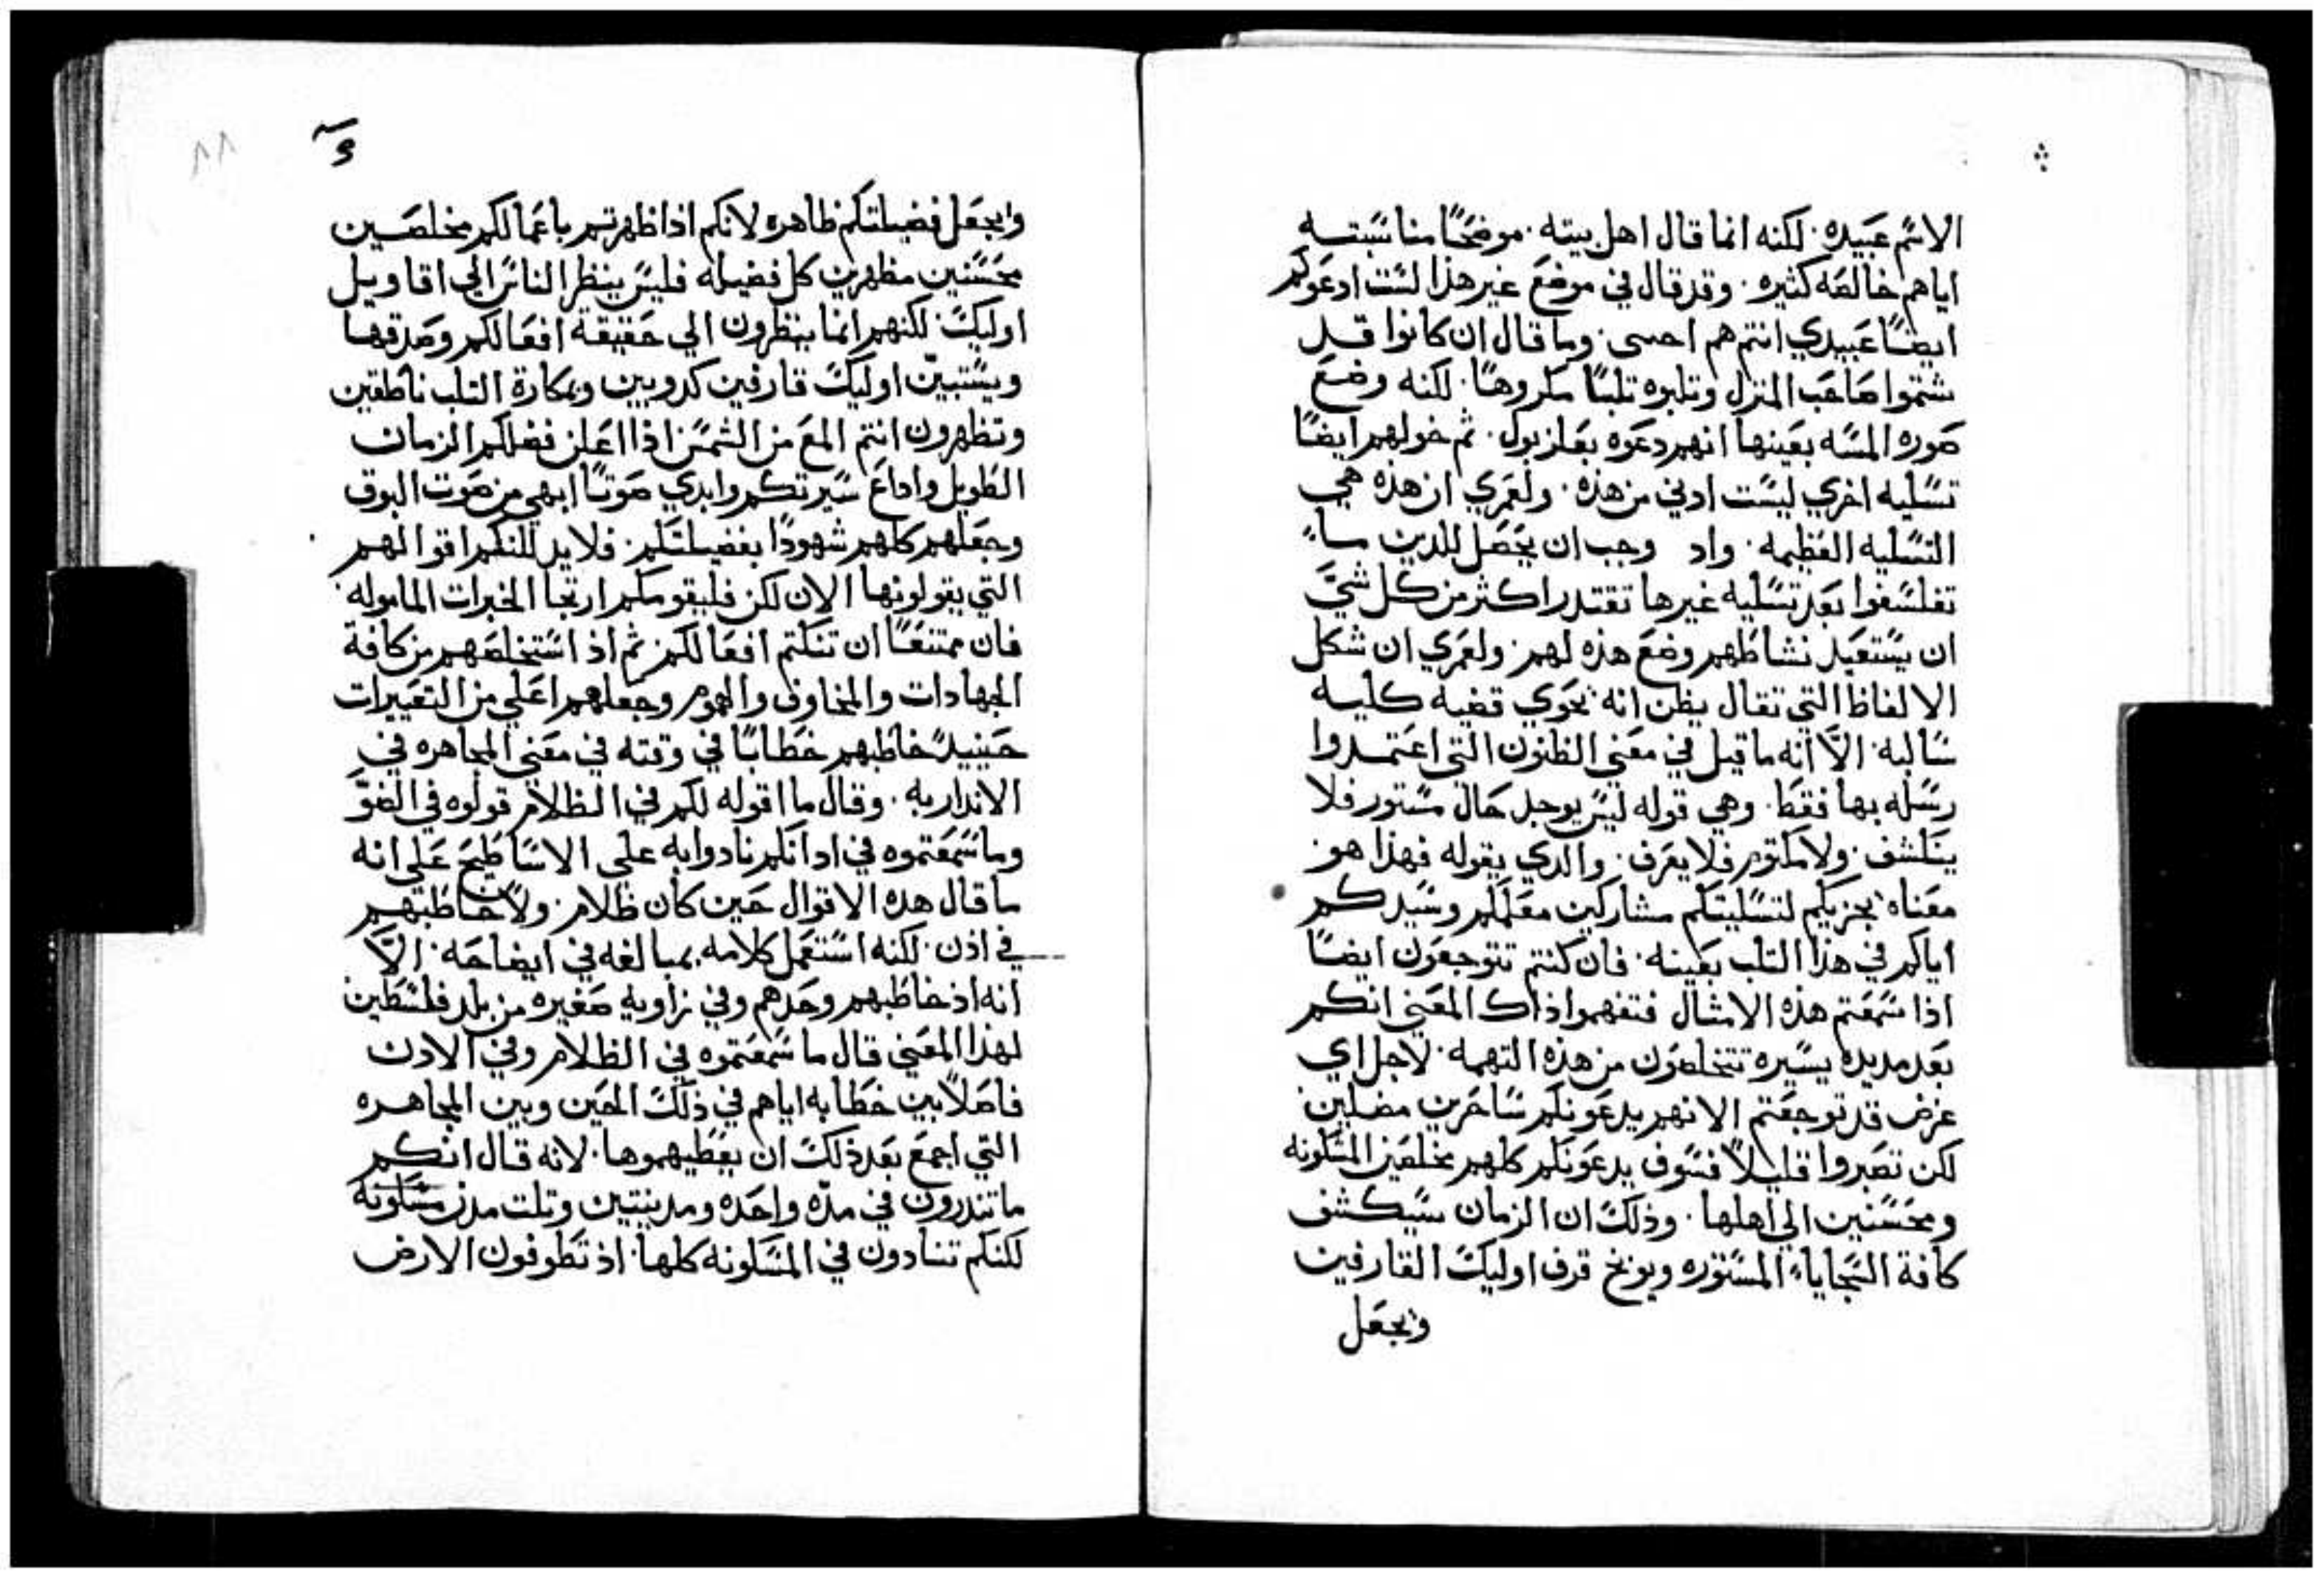 الاثم عبيده. لكنه انما قال اهل بيته. موضحًا مناسبته
اياهم خالصه كثيره. وقد قال في موضع غير هذا لست ادعوكم
ايضًا عبيدي انتم هم احبى. وما قال ان كانوا قد
شتموا صاحب المنزل وتلبوه تلبًا مكروهًا. لكنه وضع
صوره المسبه بعينها انهم دعوه بعلزبول. ثم خولهم ايضًا
تسليه اخري ليست ادني من هذه. ولعمري ان هذه هي
التسليه العظيمه. واد وجب ان يحصل للدين
تفلسفوا بعد تسليه غيرها تقتدر اكثر من كل شيَّ
ان يستعيد نشاطهم وضع هذه لهم. ولعمري ان شكل
الالفاظ التي تقال يظن انه يحوي قضيه كليه
سالبه. الَّا انه ما قيل في معني الظنون التي اعتمدوا
رسله بها فقط. وهي قوله ليس يوجد حال مستور فلا
ينكشف. ولا مكتوم فلا يعرف. والدي يقوله فهذا هو.
معناه يجزيكم لتسليتكم مشاركين معلمكم وسيدكم
اياكم في هذا التلب بعينه. فان كنتم تتوجعون ايضًا
اذا سمعتم هذه الامثال فتفهموا اذاك المعني انكم
بعد مديده يسيره تتخلصون من هذه التهمه. لاجل اي
غرض قد توجعتم الانهم يدعونكم ساحرين مضلين
لكن تصبروا قليلًا فسوف يدعونكم كلهم مخلصين المسكونه
ومحسنين الي اهلها. وذلك ان الزمان سيكشف
كافة السجاياء المستوره ويوبخ قرف اوليك القارفين
ويجعل
وايجعل فضيلتكم ظاهره لانكم اذا ظهرتم باعمالكم مخلصين
محسنين مظهرين كل فضيله فليس ينظر الناس الي اقاويل
اوليك. لكنهم انما ينظرون الي حقيقة افعالكم وصدقها
ويستبين اوليك قارفين كدوبين وبمكارة التلب ناطقين
وتظهرون انتم المع من الشمس اذا اعلن فضلكم الزمان
الطويل واداع سيرتكم وابدي صوتًا ابهي من صوت البوق
وجعلهم كلهم شهودًا بفضيلتكم. فلا يدللنكم اقوالهم
التي يقولونها الان لكن فليقومكم ارتجا الخيرات الماموله.
فان ممتنعًا ان تنكتم افعالكم. ثم اذ استخلصهم من كافة
الجهادات والمخاوف والهموم وجعلهم اعلي من التعييرات
حينيدً خاطبهم خطابًا في وقته في معني المجاهره في
الاندار به. وقال ما اقوله لكم في الظلام قولوه في الضوَّ
وما سمعتموه في ادانكم نادوا به على الاساطيح على انه
ما قال هده الاقوال حين كان ظلام. ولا خاطبهم
في اذن. لكنه استعمل كلامه بمبالغه في ايضاحه. الَّا
انه اذ خاطبهم وحدهم وفي زاويه صغيره من بلد فلسطين
لهذا المعني قال ما سمعتموه في الظلام وفي الادن
فاصلًا بين خطابه اياهم في ذلك الحين وبين المجاهره
التي اجمع بعد ذلك ان يعطيهموها. لانه قال انكم
ما تندرون في مدّه واحده ومدينتين وتلت مدن مسكونه
لكنكم تنادون في المسكونه كلها. اذ تطوفون الارض